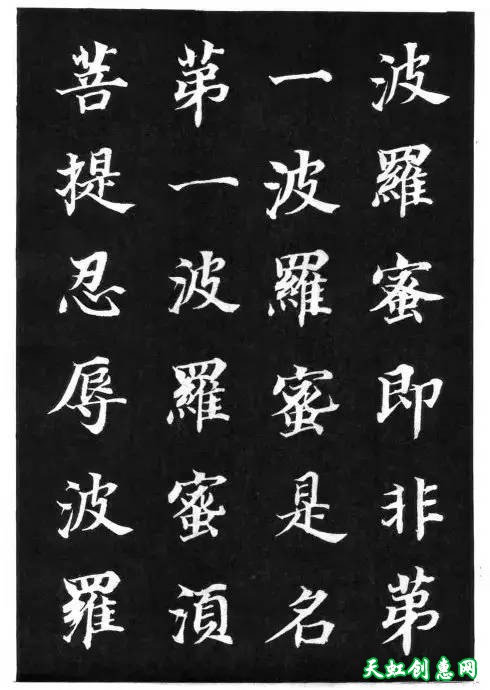 波羅蜜即非苐
一波羅蜜是名
苐一波羅蜜湏
菩提忍辱波羅
天虹创惠网